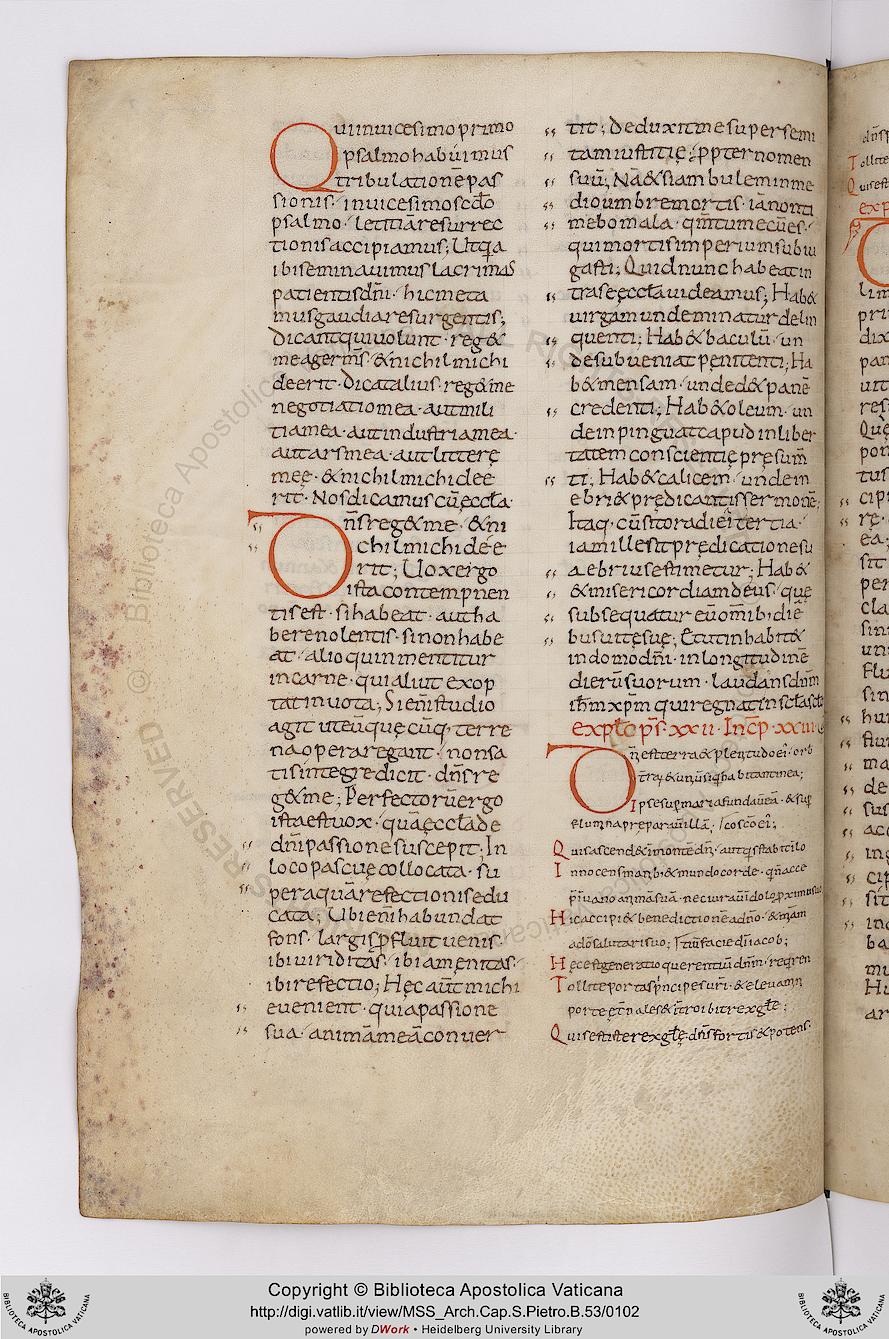 Qui in uicesimo primo
psalmo habuimus
tribulationē pas
sionis· in uicesimo scđo
psalmo· letitiā resurrec
tionis accipiamus; Ut q̄a
ibi seminauimus lacrimas
patientis dn̄i· hic meta
mus gaudia resurgentis;
Dicant qui uolunt· reg&
me ager m̄s· & nichil michi
deerit· Dicat alius· reg& me
negotiatio mea· aut mili
tia mea· aut industria mea·
aut ars mea· aut litterę
meę· & nichil michi dee
rit· Nos dicamus cū ęccła·
Dn̄s reg& me· & ni
chil michi dee
rit; Uox ergo
ista contempnen
tis est· si habeat· aut ha
bere nolentis· si non habe
at· alioquin mentitur
in carne· qui aliut exop
tat in uota; Si enī studio
agit uteūque cūq· terre
na opera regant· non sa
tis integre dicit· dn̄s re
g& me; Perfectorū ergo
ista est uox· quā ęccła de
dn̄i passione suscepit; In
loco pascuę collocata· su
per aquā refectionis edu
cata; Ubi enī habundat
fons· largis ꝓfluit uenis·
ibi uiriditas· ibi amęnitas·
ibi refectio; Hęc aūt michi
euenient· quia passione
sua· animā meā conuer
tit; deduxit me super semi
tam iustitię; ꝓpter nomen
suū; Nā & si ambulem in me
dio umbre mortis· iā non ti
mebo mala· qm̄ tu mecū es·
qui mortis imperium subiu
gasti; Quid nunc habeat in
tra se ęccła uideamus; Hab&
uirgam unde minatur delin
quenti; Hab& baculū· un
de subueniat penitenti; Ha
b& mensam· unde d& panē
credenti; Hab& oleum· un
de inpinguat capud in liber
tatem conscientię pręsum̄
ti; Hab& calicem· unde in
ebri& prędicantis sermonē;
Itaq· cū sit ora diei tertia·
iam ille sit prędicatione su
a ebrius estimetur; Hab&
& misericordiam deus· que
subsequatur eū om̄ib; diē
bus uitę suę; Et ut inhabit&
in domo dn̄i· in longitudinē
dierū suorum· laudans dnm̄
ihm̄ xp̄m qui regnat in scła scło
expłc ps̄· xxii· Incp̄· xxiii
Dn̄i est terra & plenitudo ei· orb
t̄rarȝ & uniūsi q̄ habitant in ea;
Ipse sup̄ maria fundau̅ eā· & sup̄
flumina preparauit illā·
Quis ascend& i monte dn̄i· aut q̄s stabit i lo
Innocens manib; & mundo corde· qn̄ acce
p̄ i uano anīmā suā· nec iurauī dolo ꝓximo suo
Hic accipi& benedictionē a dn̄o· & m̄am
a dō salutari suo;
Hęc est generatio querentiū dnm̄· reqren
Tollite portas p̄ncipes ur̄i· & eleuamin̄
porte ęt̄nales & it̄roibit rex głę;
Quis est iste rex głę· dn̄s fortis & potens·
Copyright © Biblioteca Apostolica Vaticana
http://digi.vatlib.it/view/MSS_Arch.Cap.S.Pietro.B.53/0102
powered by DWork • Heidelberg University Library